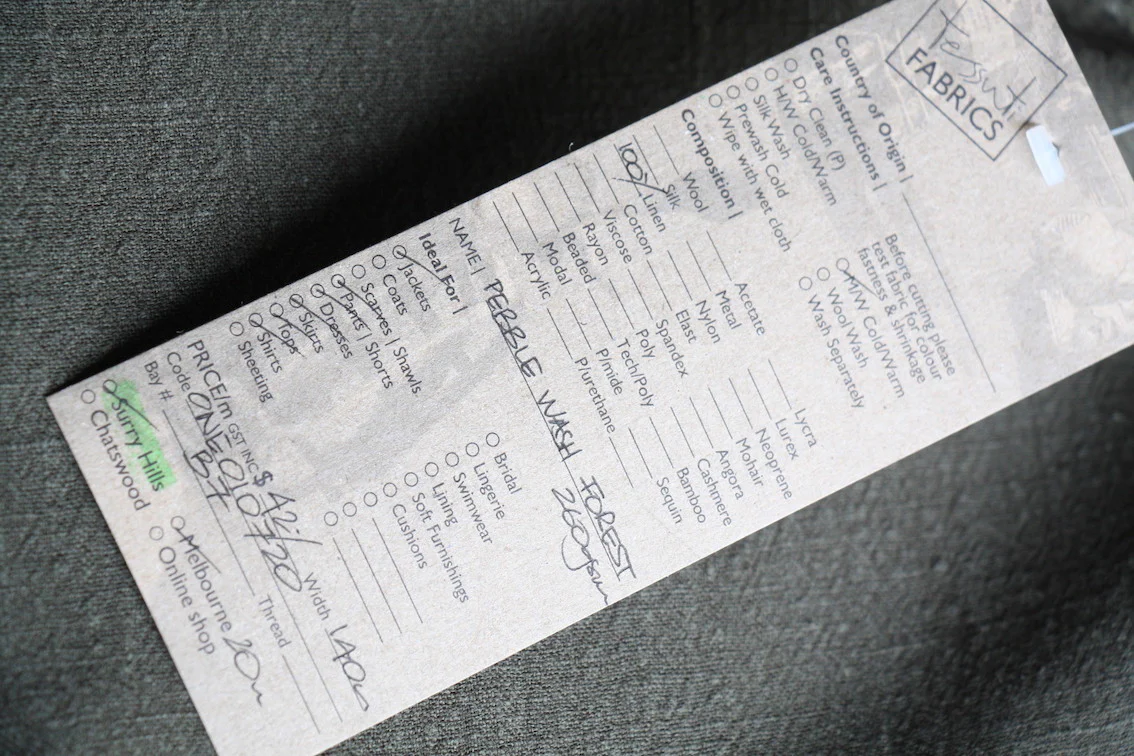 Tessuti
FABRICS
Country of Origin |
Care Instructions |
Dry Clean (P)
H/W Cold/Warm
Silk Wash
Prewash Cold
Wipe with wet cloth
Before cutting please
test fabric for colour
fastness & shrinkage
M/W Cold/Warm
Wool Wash
Wash Separately
Composition |
Wool
Silk
100% Linen
Cotton
Viscose
Rayon
Beaded
Modal
Acrylic
Acetate
Metal
Nylon
Elast
Spandex
Poly
Tech/Poly
P/mide
P/urethane
Lycra
Lurex
Neoprene
Mohair
Angora
Cashmere
Bamboo
Sequin
NAME| PEBBLE WASH FOREST
260gsm
Ideal For |
Jackets
Coats
Scarves | Shawls
Pants | Shorts
Dresses
Skirts
Tops
Shirts
Sheeting
Bridal
Lingerie
Swimwear
Lining
Soft Furnishings
Cushions
PRICE/m GST INC $ 42/ Width 140
Code
Bay # B7 Thread
Surry Hills
Chatswood
Melbourne 20m
Online shop